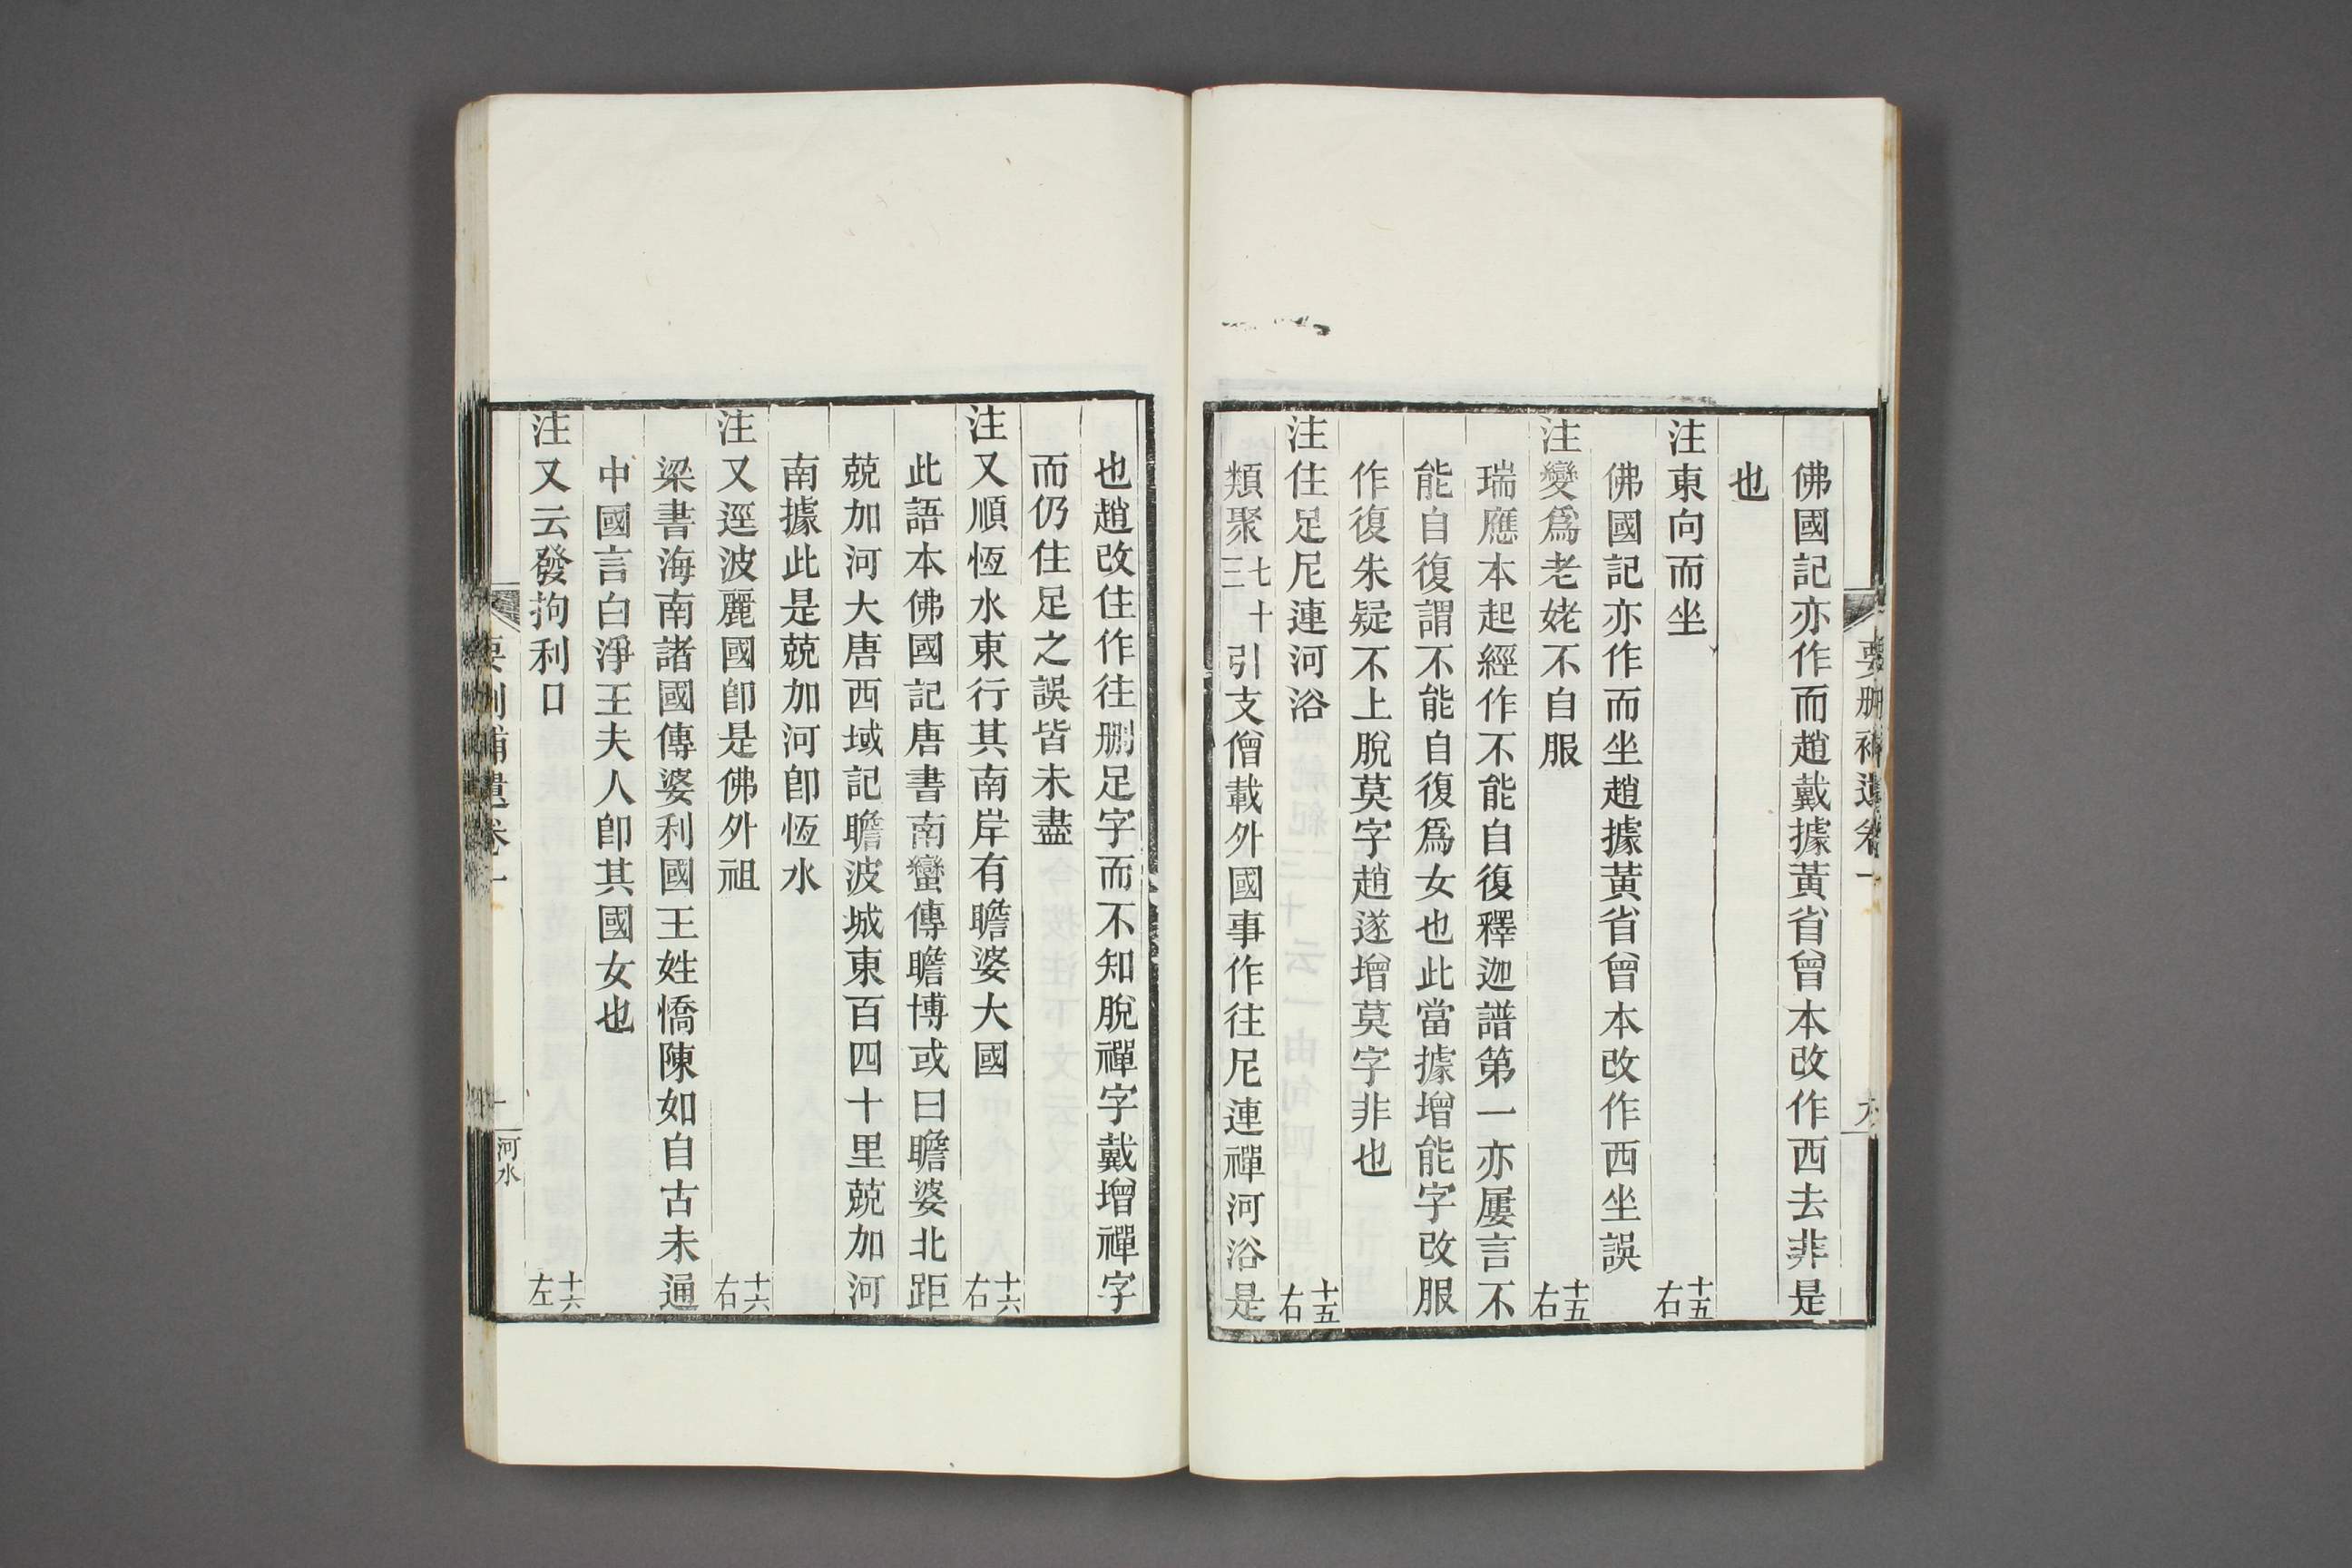 佛國記亦作而趙戴據黃省曾本改作西去非是
也
注東向而坐 十五右
佛國記亦作而坐趙據黃省曾本改作西坐誤
注變爲老姥不自服 十五右
瑞應本起經作不能自復釋迦譜第一亦屢言不
能自復謂不能自復爲女也此當據增能字改服
作復朱疑不上脫莫字趙遂增莫字非也
注住足尼連河浴 十五右
類聚七十三引支僧載外國事作往尼連禪河浴是
也趙改住作往刪足字而不知脫禪字戴增禪字
而仍住足之誤皆未盡
注又順恆水東行其南岸有瞻婆大國 十六右
此語本佛國記唐書南蠻傳瞻博或曰瞻婆北距
兢加河大唐西域記瞻波城東百四十里兢加河
南據此是兢加河卽恆水
注又逕波麗國卽是佛外祖 十六右
梁書海南諸國傳婆利國王姓憍陳如自古未通
中國言白淨王夫人卽其國女也
注又云發拘利口 十六左
要刪補遺卷一
六
要刪補遺卷一
河水